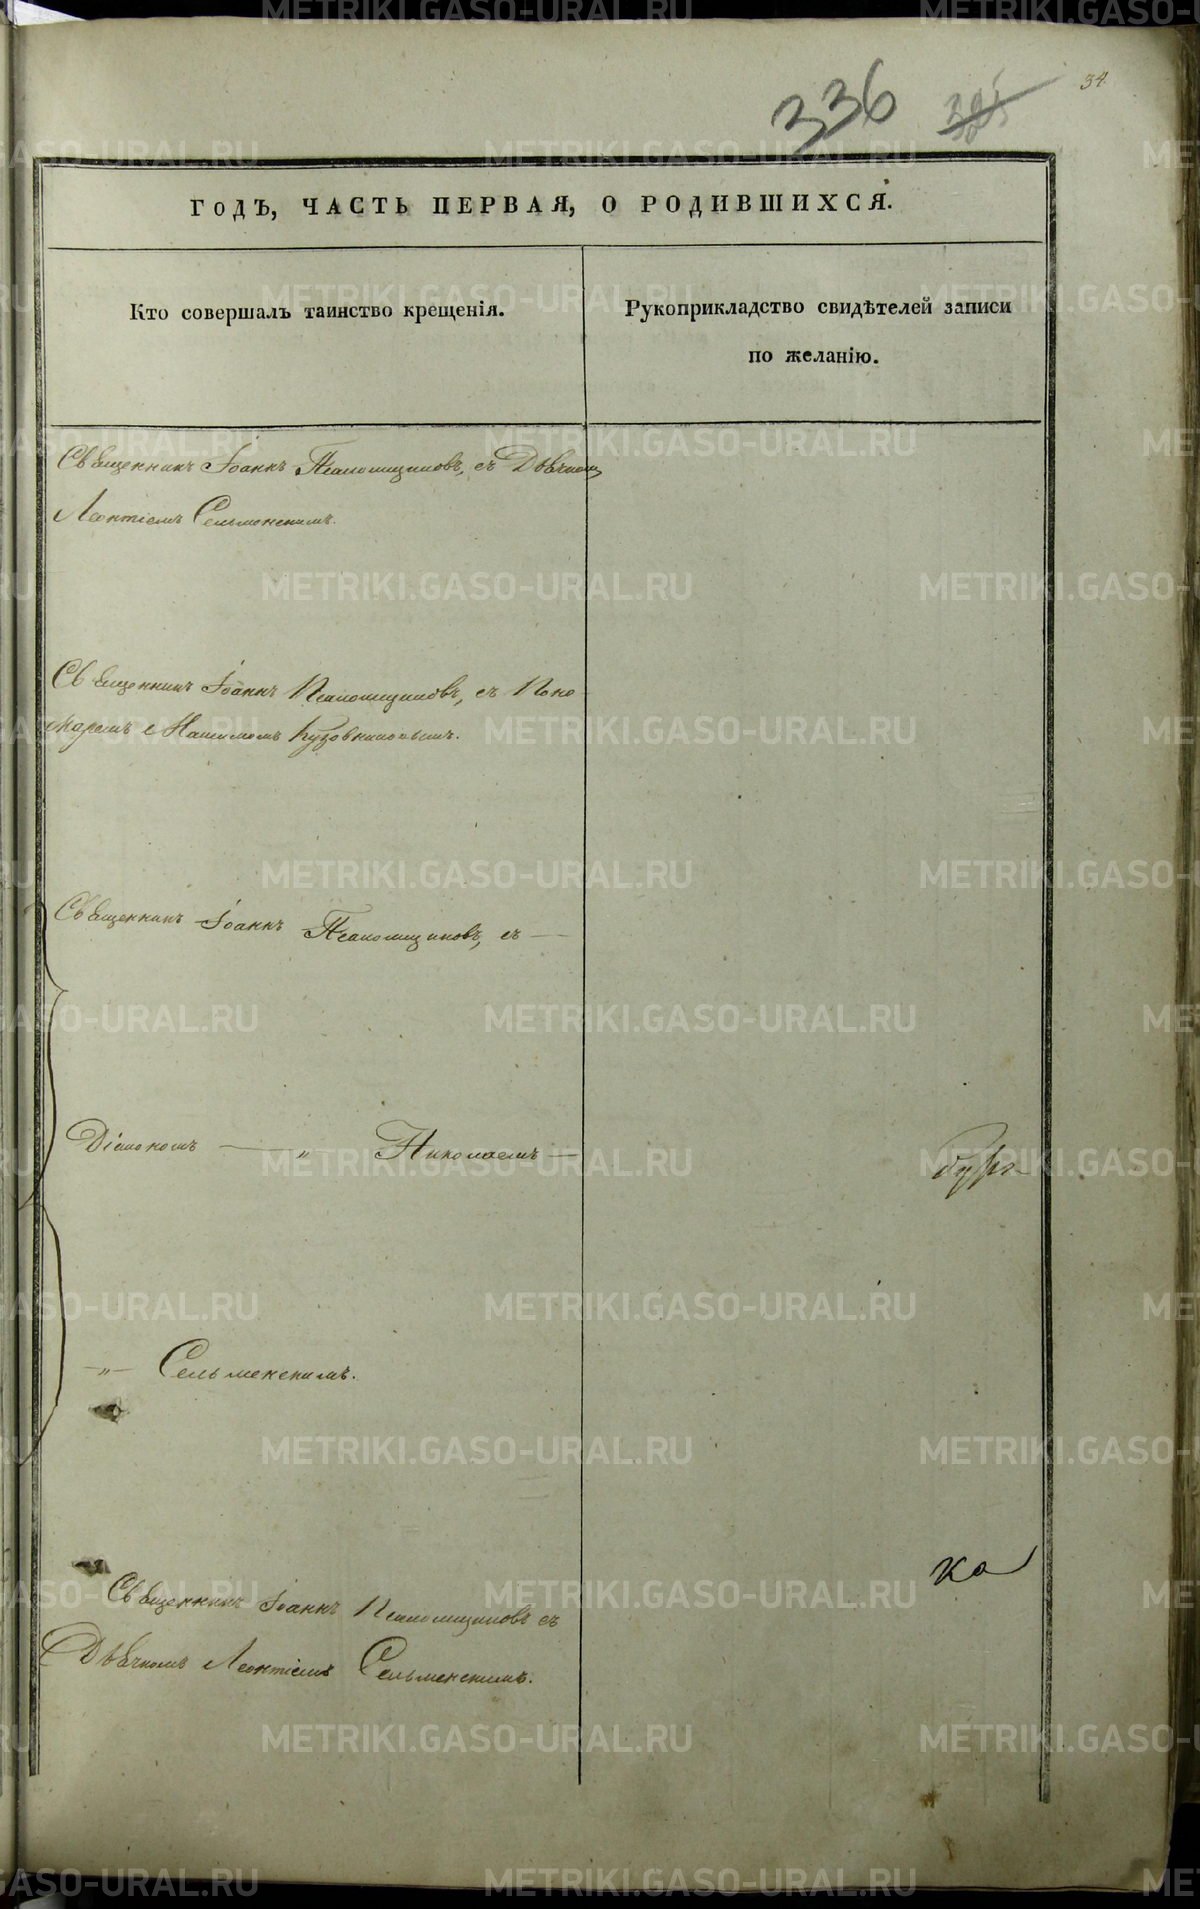 336
34
ГОДЪ, ЧАСТЬ ПЕРВАЯ, О РОДИВШИХСЯ.
Кто совершалъ таинство крещенія.
Рукоприкладство свидѣтелей записи
по желанію.
Священникъ Іоаннъ Псаломщиковъ, съ Дьячком
Леонтіемъ Сельменскимъ.
Священникъ Іоаннъ Псаломщиковъ, съ Поно
маремъ Кузовниковымъ.
Священникъ Іоаннъ Псаломщиковъ, съ —
Діакономъ — „ Николаемъ —
—„— Сельменскимъ.
ка
Священникъ Іоаннъ Псаломщиковъ съ
Дьячкомъ Леонтіемъ Сельменскимъ.
METRIKI.GASO-URAL.RU